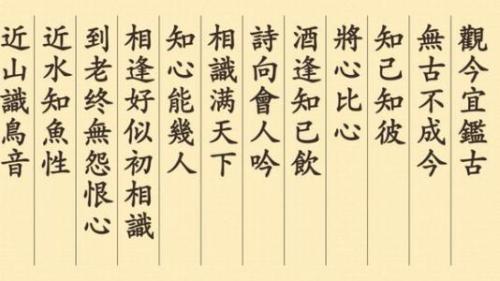 觀今宜鑑古
無古不成今
知己知彼
將心比心
酒逢知己飲
詩向會人吟
相識满天下
知心能幾人
相逢好似初相識
到老终無怨恨心
近水知魚性
近山識鳥音